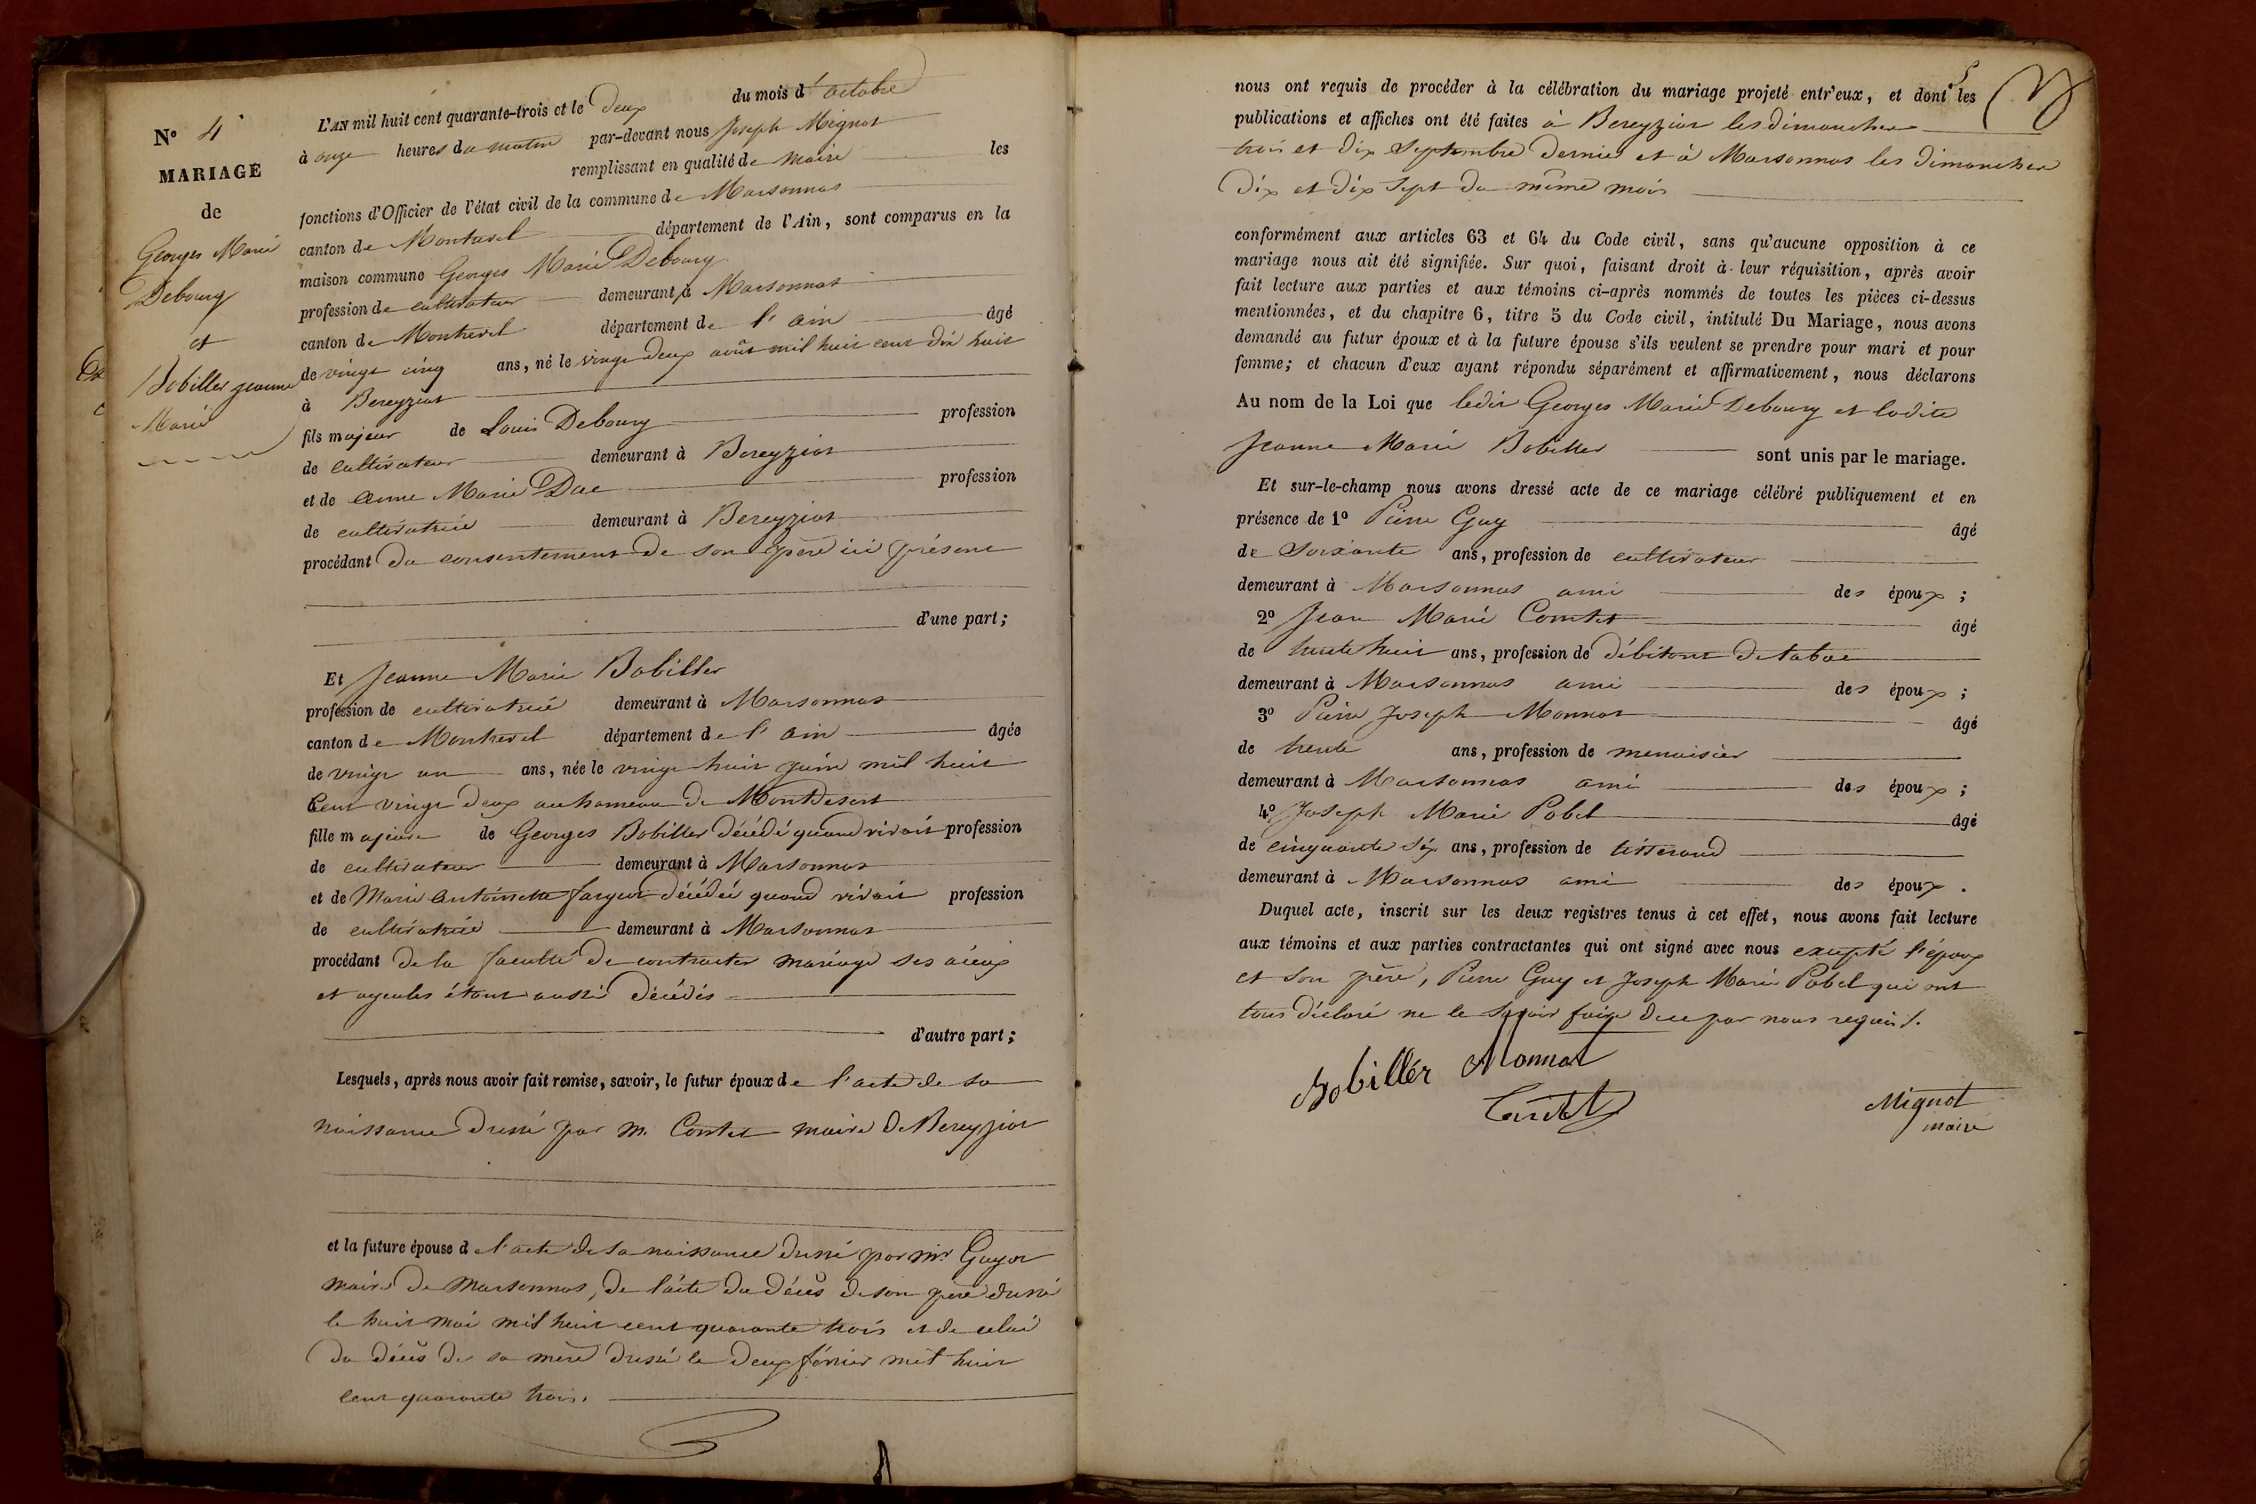 N° 4
MARIAGE
de
Georges Marie
Debourg
et
Bobiller jeanne
Marie
L'AN mil huit cent quarante-trois et le deux du mois d'octobre
à onze heures du matin par-devant nous Joseph Mignot
remplissant en qualité de maire les
fonctions d'Officier de l'état civil de la commune de Marsonnas
canton de Montrevel département de l'Ain, sont comparus en la
maison commune Georges Marie Debourg
profession de cultivateur demeurant à Marsonnas
canton de Montrevel département de l'ain âgé
de vingt cinq ans, né le vingt deux août mil huit cent dix huit
à Bereyziat
fils majeur de Louis Debourg profession
de cultivateur demeurant à Bereyziat
et de anne Marie Duc profession
de cultivatrice demeurant à Bereyziat
procédant du consentement de son père ici présent
d'une part;
Et Jeanne Marie Bobiller
profession de cultivatrice demeurant à Marsonnas
canton de Montrevel département de l'ain âgée
de vingt un ans, née le vingt huit juin mil huit
cent vingt deux au hameau de Montdesert
fille majeure de Georges Bobiller décédé quand vivait profession
de cultivateur demeurant à Marsonnas
et de Marie antoinette décédée quand vivait profession
de cultivatrice demeurant à Marsonnas
procédant de la faculté de contracter mariage ses aieux
et ayeules étant aussi décédés
d'autre part;
Lesquels, après nous avoir fait remise, savoir, le futur époux de l'acte de sa
naissance dressé par m. Comtet maire de Bereyziat
et la future épouse de l'acte de sa naissance dressé par mr Guyot
maire de Marsonnas, de l'acte du décès de son père dressé
le huit mai mil huit cent quarante trois et de celui
du décès de sa mère dressé le deux février mil huit
cent quarante trois.
5
nous ont requis de procéder à la célébration du mariage projeté entr'eux, et dont les
publications et affiches ont été faites à Bereyziat les dimanches
trois et dix septembre dernier et à Marsonnas les dimanches
dix et dix sept du même mois
conformément aux articles 63 et 64 du Code civil, sans qu'aucune opposition à ce
mariage nous ait été signifiée. Sur quoi, faisant droit à leur réquisition, après avoir
fait lecture aux parties et aux témoins ci-après nommés de toutes les pièces ci-dessus
mentionnées, et du chapitre 6, titre 5 du Code civil, intitulé Du Mariage, nous avons
demandé au futur époux et à la future épouse s'ils veulent se prendre pour mari et pour
femme; et chacun d'eux ayant répondu séparément et affirmativement, nous déclarons
Au nom de la Loi que ledit Georges Marie Debourg et ladite
Jeanne Marie Bobiller sont unis par le mariage.
Et sur-le-champ nous avons dressé acte de ce mariage célébré publiquement et en
présence de 1° Pierre Guy âgé
de soixante ans, profession de cultivateur
demeurant à Marsonnas ami des époux;
2° Jean Marie Comtet âgé
de trente huit ans, profession de débitant de tabac
demeurant à Marsonnas ami des époux;
3° Pierre Joseph Monnat âgé
de trente ans, profession de menuisier
demeurant à Marsonnas ami des époux;
4° Joseph Marie Pobel âgé
de cinquante six ans, profession de tisserand
demeurant à Marsonnas ami des époux.
Duquel acte, inscrit sur les deux registres tenus à cet effet, nous avons fait lecture
aux témoins et aux parties contractantes qui ont signé avec nous excepté l'époux
et son père, Pierre Guy et Joseph Marie Pobel qui ont
tous déclaré ne le savoir faire de ce par nous requis.
Bobillér Monnat
Comtet
Mignot
maire